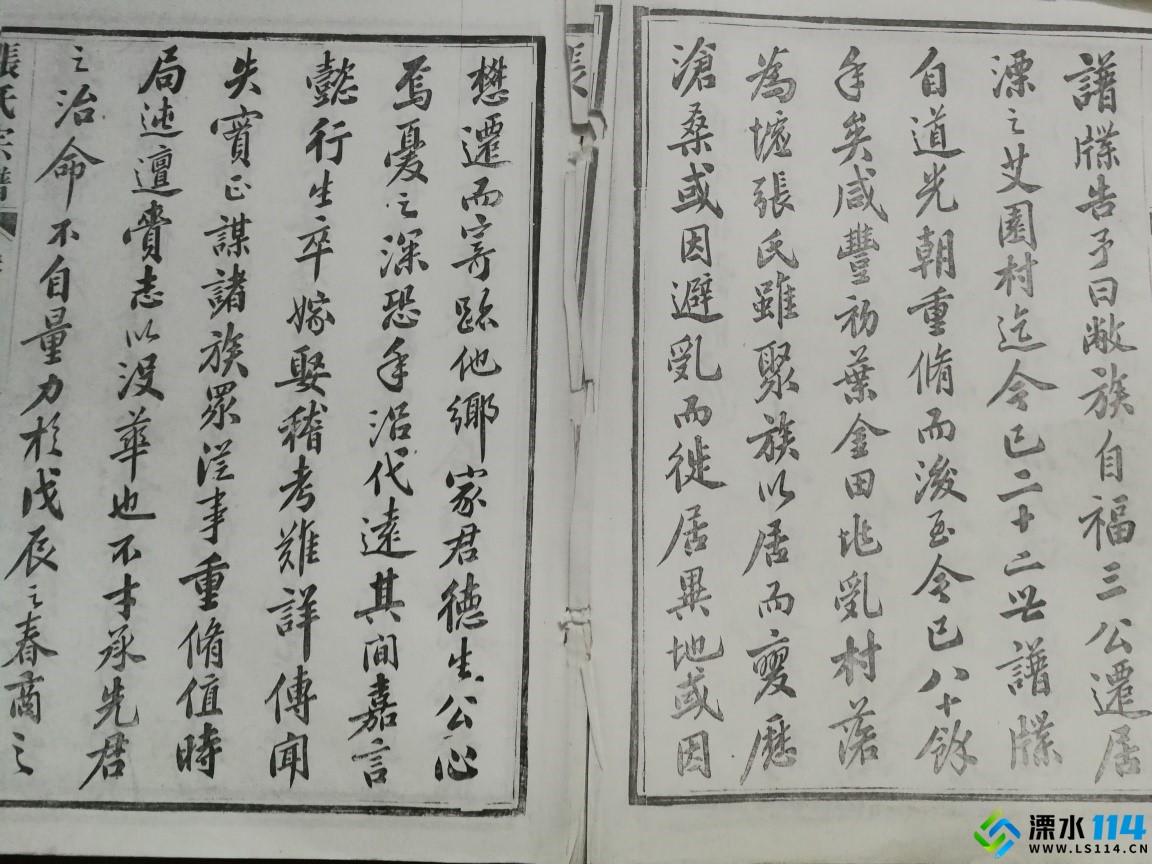 譜牒告予曰敝族自福三公遷居
溧之艾園村迄今已二十二世譜牒
自道光朝重脩而後至今已八十餘
年矣咸豐初葉金田兆亂村落
為墟張氏雖聚族以居而變歷
滄桑或因避亂而徙居異地或因
懋遷而寄跡他鄉家君德生公心
焉憂之深恐年沿代遠其間嘉言
懿行生卒嫁娶稽考難詳傳聞
失實正謀諸族眾從事重脩值時
局迍邅賫志以沒華也不才承先君
之治命不自量力於戊辰之春商之
張氏宗譜
張
溧水114
WWW.LS114.CN